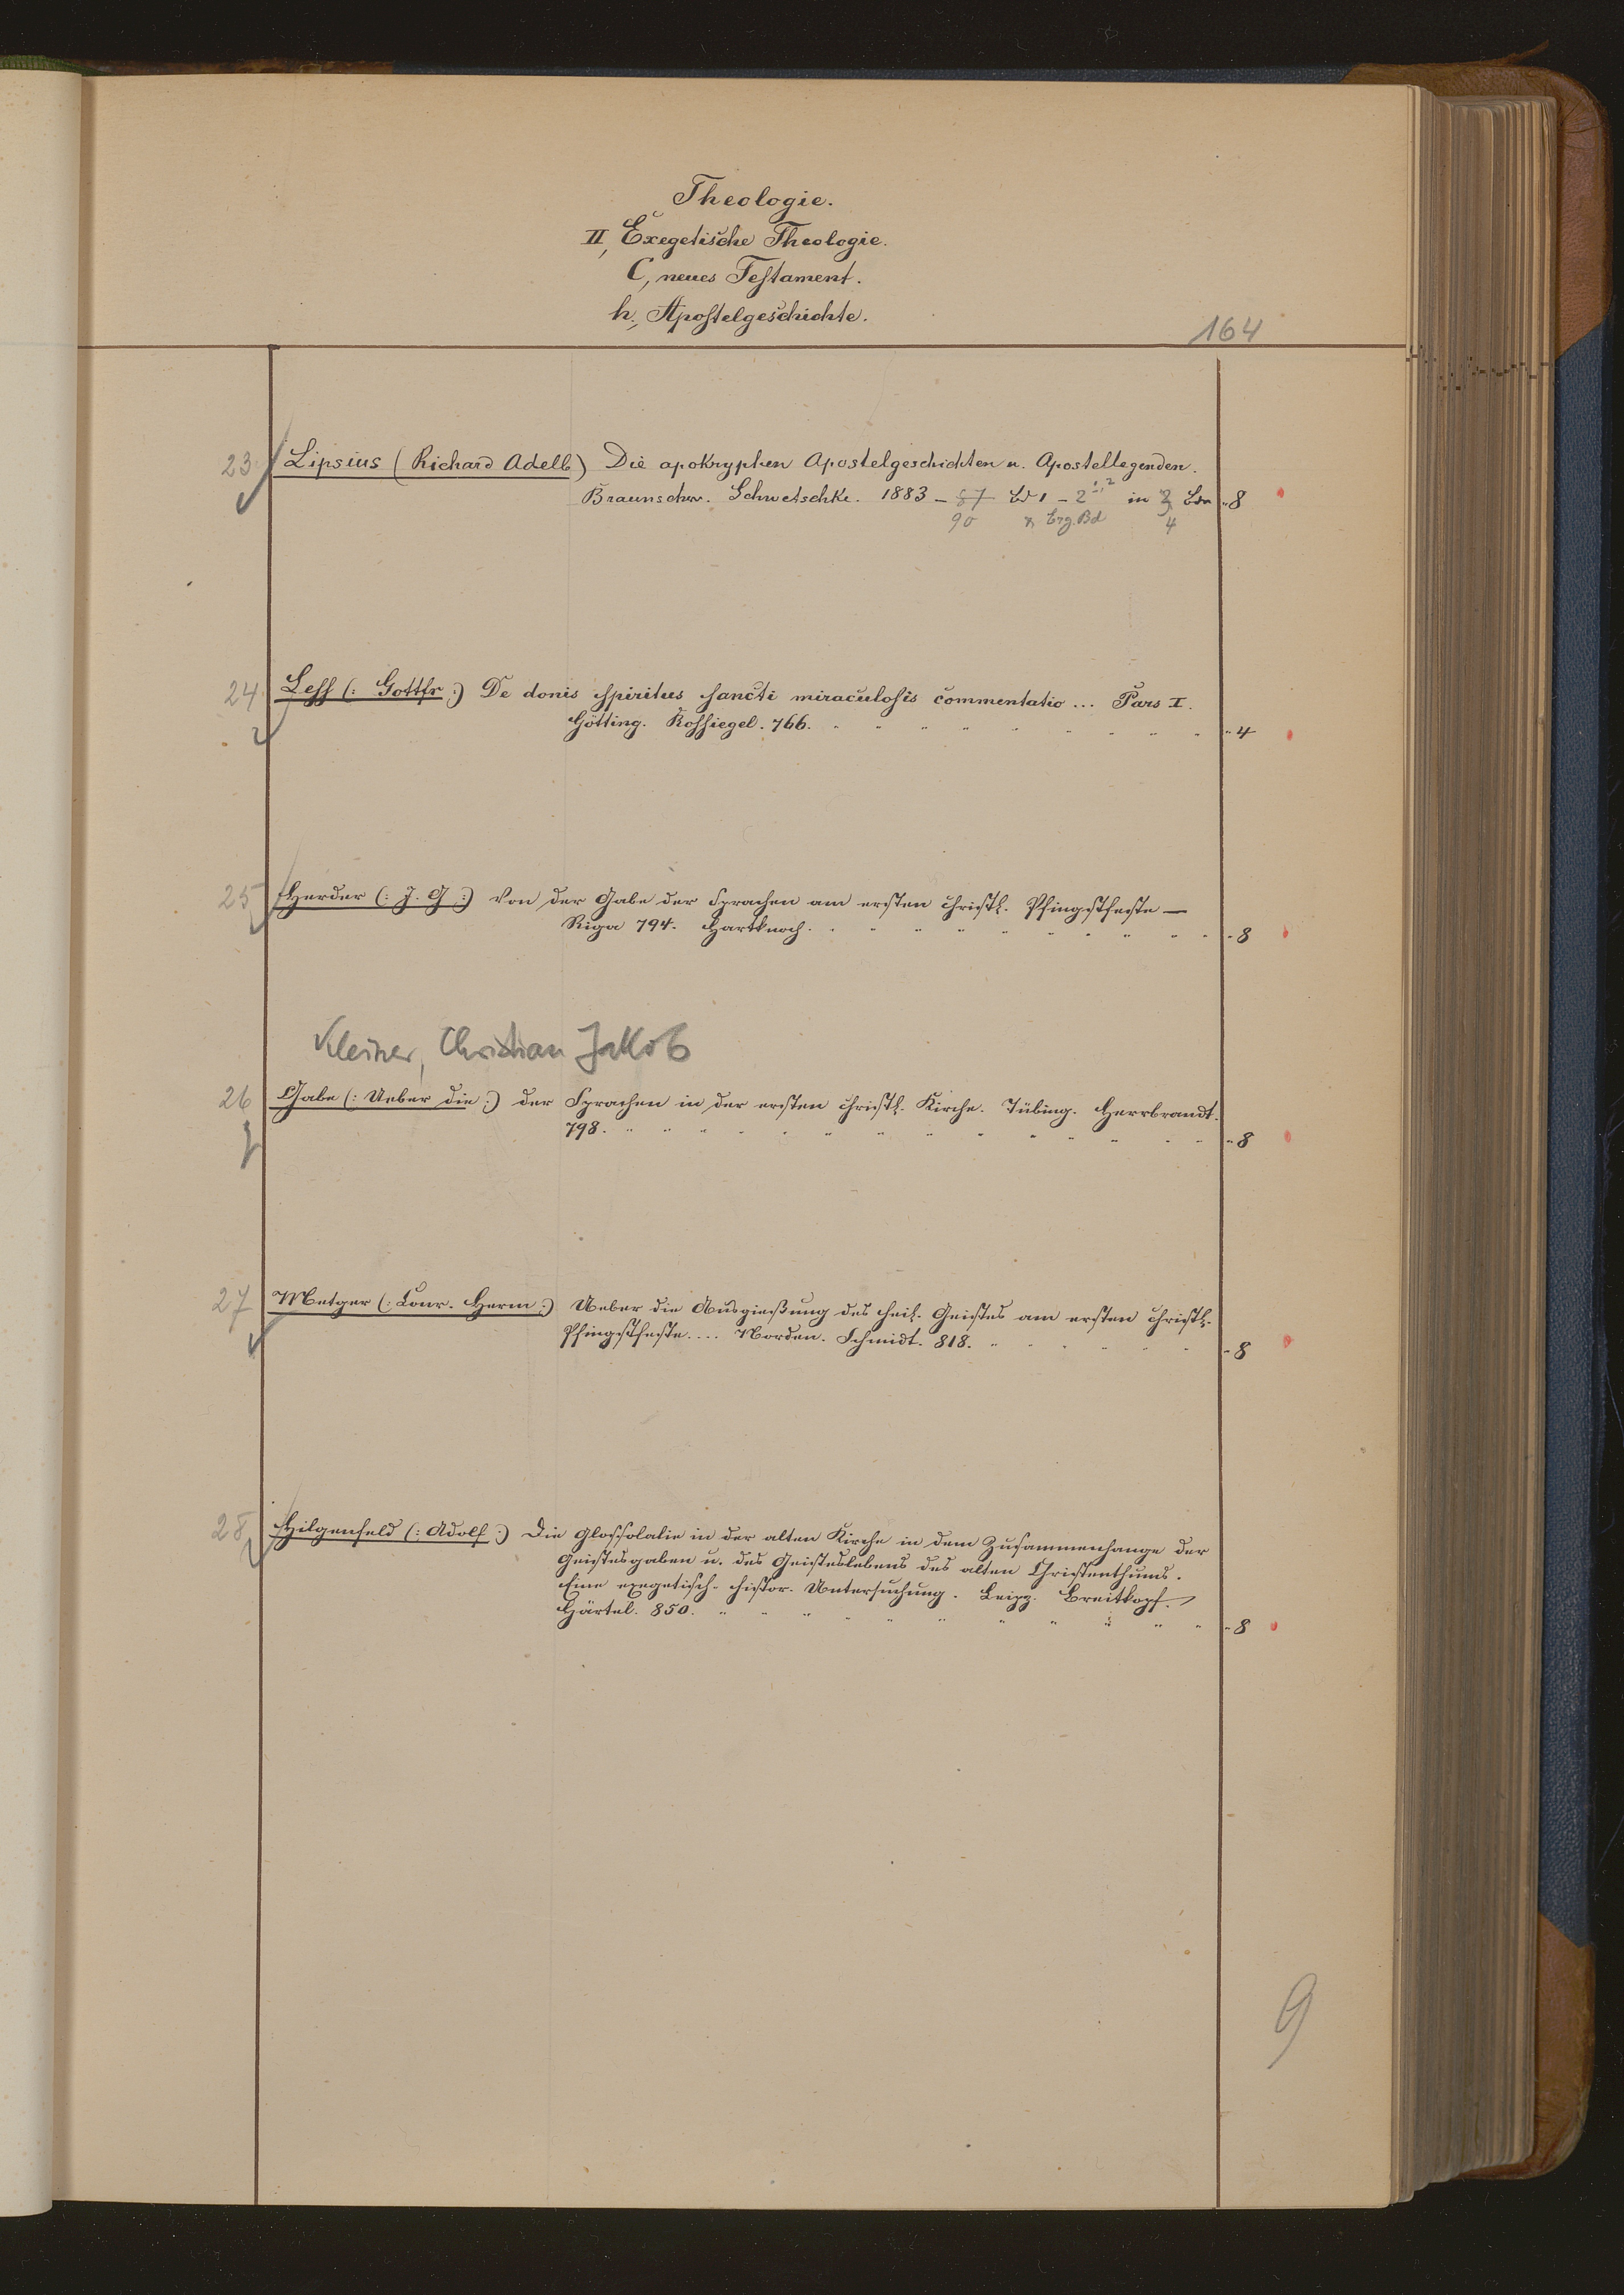 Theologie.
II, Exegetische Theologie.
C, neues Testament.
h., Apostelgeschichte.
164
23. Lipsius (Richard Adelb) Die apokryphen Apostelgeschichten u. Apostellegenden.
Braunschw. Schwetschke. 1883 - 87 Bd 1 - 2 1,2 in 3 Bdn "8
90 & Erg. Bd 4
24. Less (: Gottfr :) De donis spiritus sancti miraculosis commentatio ... Pars I.
Götting. Rossiegel. 766. "4
25 Herder (: J. G :) Von der Gabe der Sprachen am ersten christl. Pfingstfeste —
Riga 794. Hartknoch. "8
Kleiner, Christian Jakob
26 Gabe (: Ueber die :) der Sprachen in der ersten christl. Kirche. Tübing. Herrbrandt.
798. "8
27 Metger (: Conr. Herm :) Ueber die Ausgießung des heil. Geistes am ersten christl.
Pfingstfeste .... Norden. Schmidt. 818. "8
28 Hilgenfeld (: Adolf :) Die Glossolalie in der alten Kirche in dem Zusammenhange der
Geistesgaben u. des Geisteslebens des alten Christenthums.
Eine exegetisch-histor. Untersuchung. Leipz. Breitkopf.
Härtel. 850. "8
9